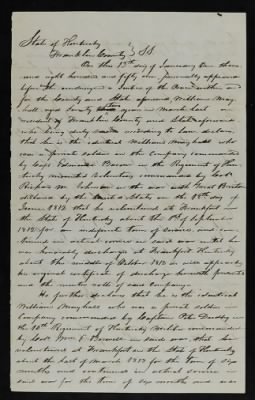 State of Kentucky
Franklin County } SS
On this 13th day of January one thous-
and eight hundred and fifty one, personally appeared
before the undersigned a Justice of the Peace within and
for the County and State aforesaid William May-
hall aged Seventy years in March last a
resident of Franklin County and State aforesaid
who being duly sworn according to law declares
that he is the identical William Mayhall who
was a private soldier in the Company commanded
by Capt in the Regiment of Ken-
tucky mounted Volunteers commanded by Col.
Richard M. Johnson in the war with Great Britain
declared by the United States on the 18th day of
June 1812 that he volunteered at Frankfort in
the State of Kentucky about the 1st of September
1812 for an indefinite term of service, and con-
tinued in actual service in said war until he
was honorably discharged at Frankfort Kentucky
about the middle of October 1812 as will appear by
his original certificate of discharge herewith presented
and the muster rolls of said Company.
He further declares that he is the identical
William Mayhall who was a private soldier in
Company commanded by Captain Peter Dudley in
the 10th Regiment of Kentucky Militia commanded
by Col. Wm. E. Boswell in said war, that he
volunteered at Frankfort in the State of Kentucky
about the last of March 1813 for the term of six
months and continued in actual service in
said war for the term of six months and was